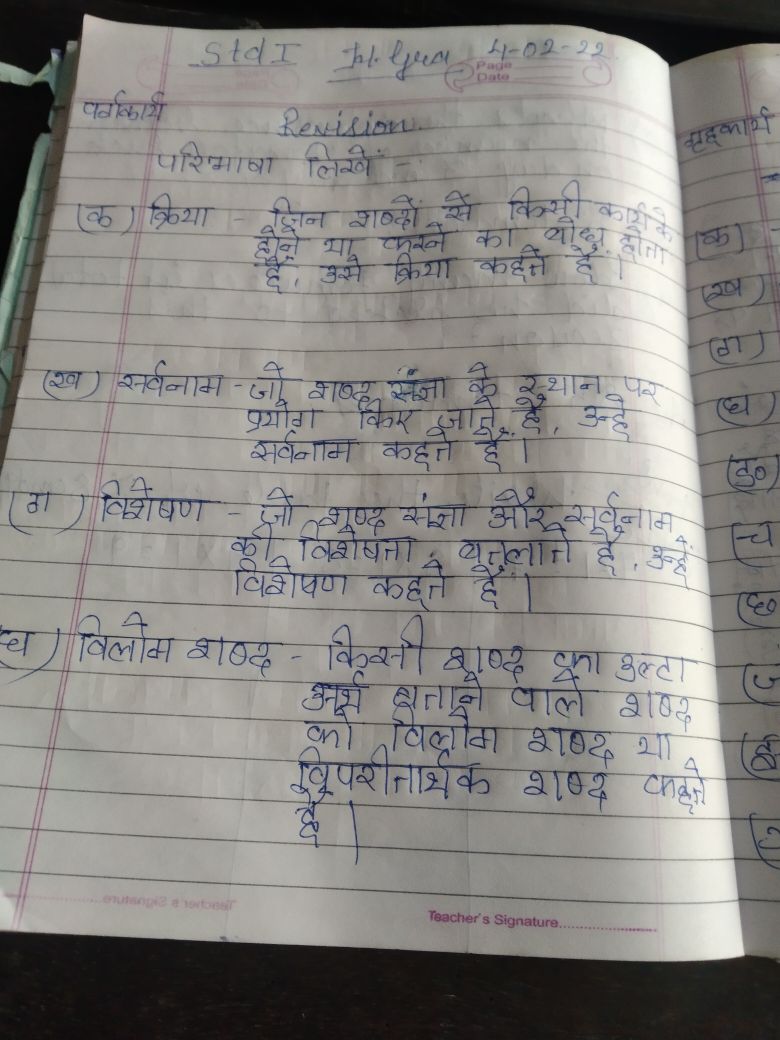 Std I H. Gra 4-02-22
Page
Date
वर्गकार्य
Revision
परिभाषा लिखें -
(क) क्रिया - जिन शब्दों से किसी कार्य के
होने या करने का बोध होता
है, उसे क्रिया कहते हैं।
(ख) सर्वनाम - जो शब्द संज्ञा के स्थान पर
प्रयोग किए जाते हैं, उन्हें
सर्वनाम कहते हैं।
(ग) विशेषण - जो शब्द संज्ञा और सर्वनाम
की विशेषता बतलाते हैं, उन्हें
विशेषण कहते हैं।
(घ) विलोम शब्द - किसी शब्द का उल्टा
अर्थ बताने वाले शब्द
को विलोम शब्द या
विपरीतार्थक शब्द कहते
हैं।
Teacher's Signature
गृहकार्य
(क)
(ख)
(ग)
(घ)
(ङ)
(च
(छ)